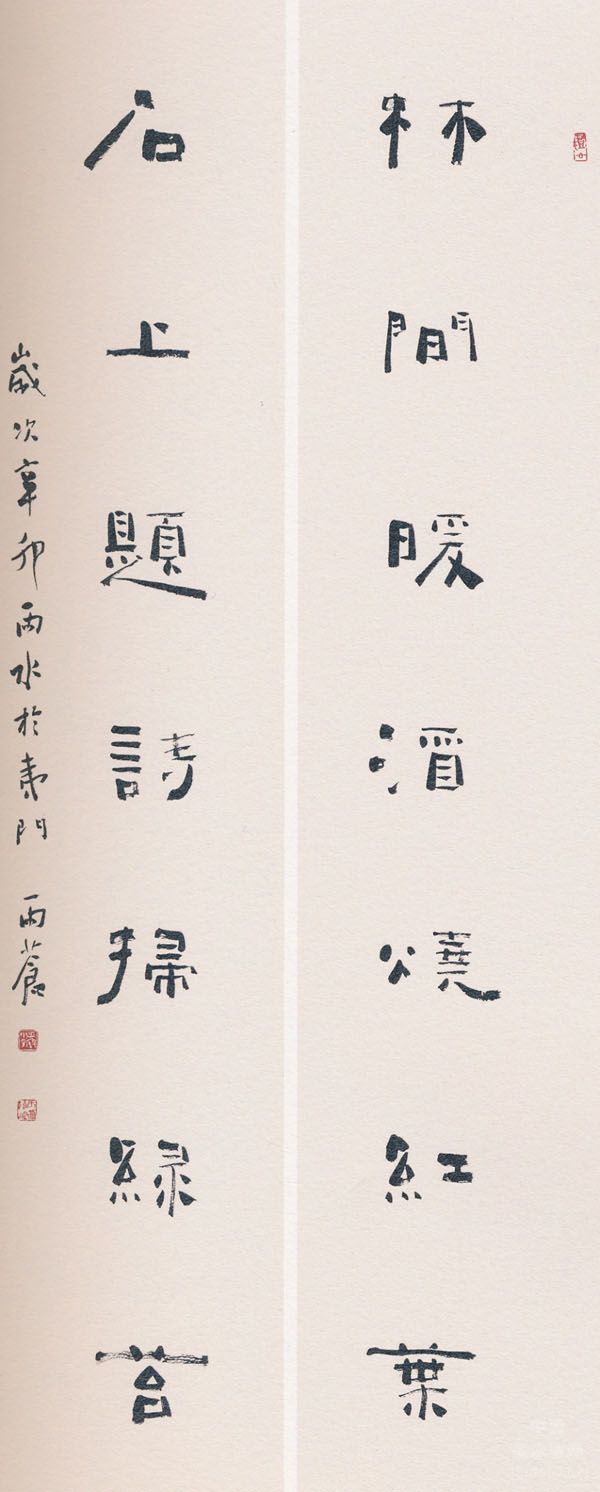 林間暖酒燒紅葉
石上題詩掃緑苔
歲次辛卯雨水於夷門 雨蒼